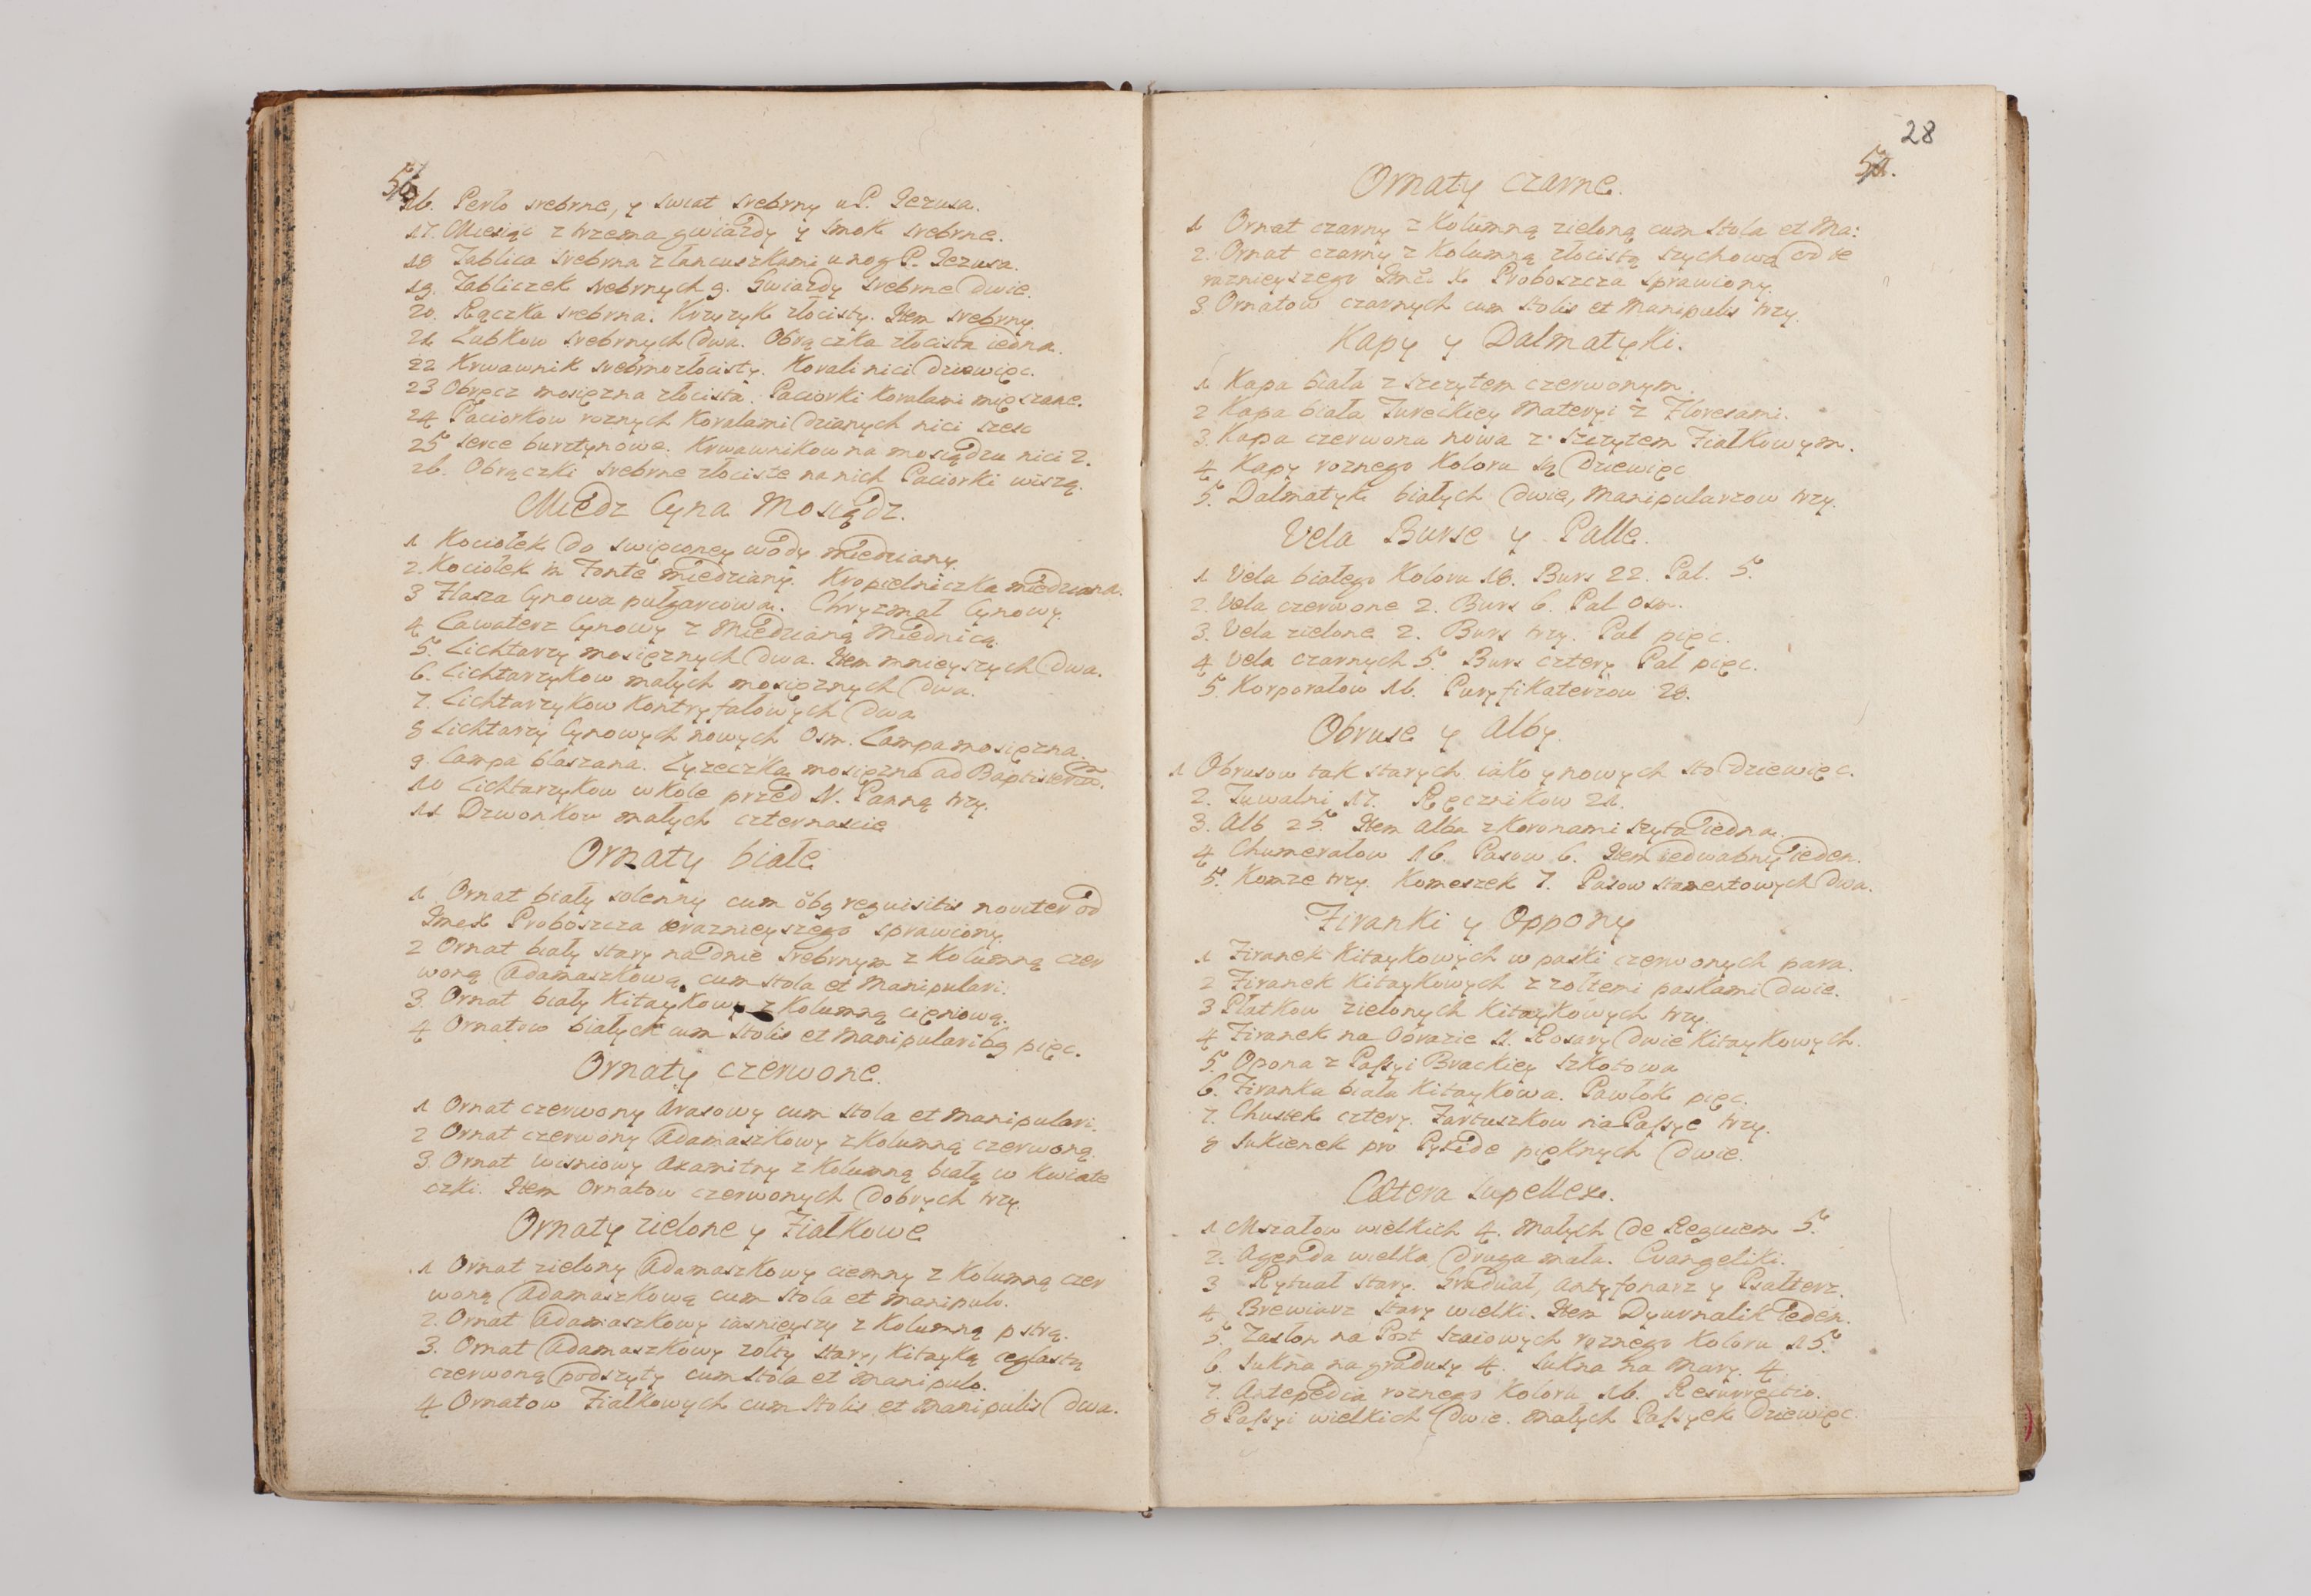 56
16. Perło srebrne, y swiat srebrny u P. Jezusa.
17. Miesiąc z trzema gwiazdy y smok srebrne.
18 Tablica srebrna z łancuszkami u nog P. Jezusa.
19. Tabliczek srebrnych 9. Gwiazdy srebrne dwie.
20. Rączka srebrna. Krzyzyk złocisty. Item srebrny.
21 Lubkow srebrnych dwa. Obrączka złocista iedna.
22 Krwawnik srebrnozłocisty. Korali nici dziewięc.
23 Obręcz mosięzna złocista. Paciorki koralami mięszane.
24 Paciorkow roznych koralami dzianych nici szesc
25 serce bursztynowe. Krwawnikow na mosiądzu nici 2.
26. Obrączki srebrne złociste na nich Paciorki wiszą.
Miedz Cyna Mosiądz.
1 Kociołek do swięconey wody miedziany.
2. Kociołek in Fonte miedziany. Kropielniczka miedziana.
3 Flasza Cynowa pułgarcowa. Chryzmal Cynowy.
4 Lawaterz Cynowy z miedzianą miednicą.
5. Lichtarzy mosięznych dwa. Item mnieyszych dwa.
6. Lichtarzykow małych mosięznych dwa.
7. Lichtarzykow kontryfałowych dwa
8 Lichtarzy Cynowych nowych Osm. Lampa mosięzna.
9. Lampa blaszana. Łyzeczka mosięzna ad Baptisteria.
10 Lichtarzykow w kole przed N. Panną trzy.
11 Dzwonkow małych czternascie
Ornaty białe
1 Ornat biały solenny cum obg requisitis noviter od
Jmex Proboszcza teraznieyszego sprawiony.
2 Ornat biały stary na dnie srebrnym z kolumną czer
woną Adamaszkową, cum stola et manipulari.
3. Ornat biały kitaykowy z kolumną cięniową.
4 Ornatow białych cum stolis et manipularibg pięc.
Ornaty czerwone.
1 Ornat czerwony Arasowy cum stola et manipulari.
2 Ornat czerwony Adamaszkowy z kolumną czerwoną.
3. Ornat wisniowy Axamitny z kolumną białą w kwiate
czki. Item Ornatow czerwonych dobrych trzy.
Ornaty zielone y Fiałkowe
1 Ornat zielony Adamaszkowy ciemny z kolumną czer
woną Adamaszkową cum stola et manipulo.
2. Ornat Adamaszkowy iasnieyszy z kolumną pstrą.
3. Ornat Adamaszkowy zolty stary, kitayką ceglastą
czerwoną podszyty cum stola et manipulo.
4 Ornatow Fiałkowych cum stolis et manipulis dwa.
28
Ornaty czarne.
1 Ornat czarny z kolumną zieloną cum stola et Ma:
2. Ornat czarny z kolumną złocistą szychową od te
raznieyszego Jmci X Proboszcza sprawiony.
3. Ornatow czarnych cum stolis et manipulis trzy.
Kapy y Dalmatyki.
1 Kapa biała z szczytem czerwonym.
2 Kapa biała Tureckiey materyi z Floresami.
3. Kapa czerwona nowa z szczytem Fiałkowym.
4 Kapy roznego koloru są dziewięc
5. Dalmatyk białych dwie, manipularzow trzy.
Vela Burse y Palle.
1 Vela białego koloru 18. Burs 22. Pal. 5.
2. Vela czerwone 2. Burs 6. Pal Osm.
3. Vela zielone 2. Burs trzy. Pal pięc.
4 Vela czarnych 5. Burs cztery Pal pięc.
5. Korporałow 16. Puryfikaterzow 28.
Obruse y Alby.
1 Obrusow tak starych iako y nowych sto dziewięc.
2. Tuwalni 17. Ręcznikow 21.
3. Alb 25. Item Alba z koronami szyta iedna.
4 Chumerałow 16. Pasow 6. Item iedwabny ieden.
5. Komze trzy. Komeszek 7. Pasow stamentowych dwa.
Firanki y Oppony
1 Firanek kitaykowych w paski czerwonych para.
2 Firanek kitaykowych z zołtemi paskami dwie.
3 Płatkow zielonych kitaykowych trzy.
4 Firanek na Obrazie S. Rosary dwie kitaykowych.
5. Opona z Passyi Brackiey szkotowa
6. Firanka biała kitaykowa. Pawłok pięc.
7. Chustek cztery. Fartuszkow na Passye trzy.
8 Sukienek pro Pyxide pięknych dwie.
Cætera Supellex.
1 Mszałow wielkich 4. małych de Requiem 5.
2. Agenda wielka druga mała. Evangeliki.
3 Rytuał stary. Graduał, Antyfonarz y Psałterz.
4. Brewiarz stary wielki. Item Dyurnalik ieden.
5. Zasłon na Post szaiowych roznego koloru 15.
6. Sukna na gradusy 4. Sukna na mary. 4
7. Antepedia roznego koloru 16. Resurrectio.
8 Passyi wielkich dwie. małych Passyek dziewięc